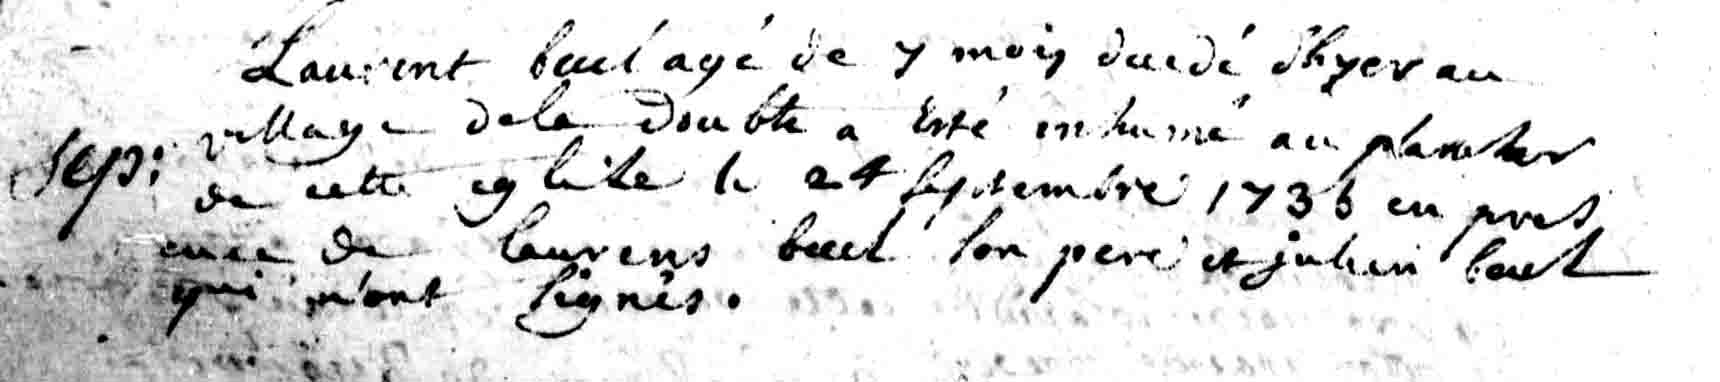 Laurent bael agé de 7 mois decedé d'hyer au
village dela Double a esté inhumé au placitre
Sep: de cette eglise le 24 septembre 1736 en pres
ence de laurens bael son pere et julien bael
qui n'ont signés.